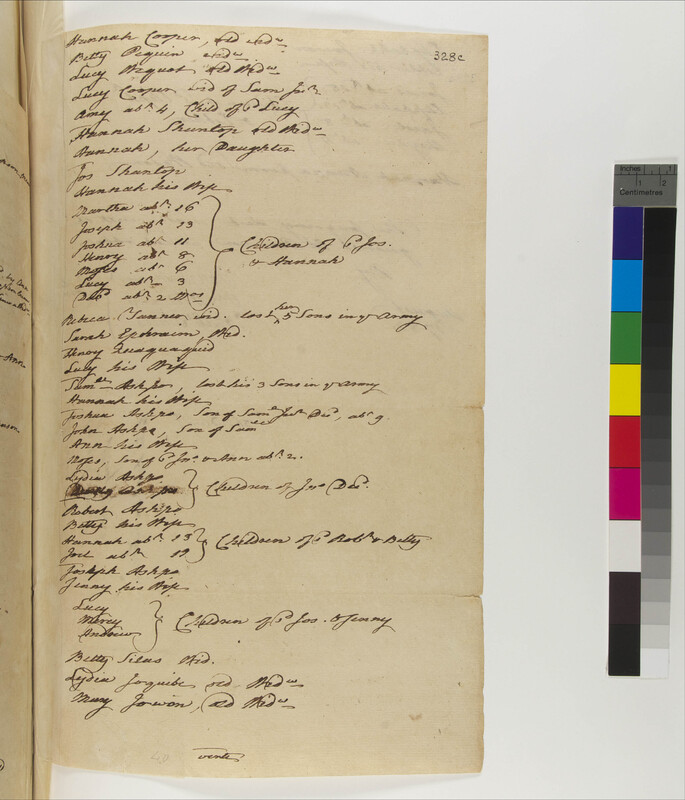 328c
Hannah Cooper, old Wid.w
Betty Pequin Wid.w
Lucy Pequot old Wid.w
Lucy Cooper Wid of Sam Jun.r
Amy ab.t 4, Child of s.d Lucy
Hannah Shuntop old Wid.w
Hannah, her Daughter
Jos Shuntop
Hannah his Wife
Martha ab.t 16
Joseph ab.t 13
Joshua ab.t 11
Henry ab.t 8
Moses ab.t 6
Lucy ab.t 3
Dav.d ab.t 2 Mos
Children of s.d Jos.
& Hannah
Rebeca Tanner wid. lost her 5 Sons in y.e Army
Sarah Ephraim, Wid.
Henry Quaquaquid
Lucy his Wife
Sam.ll Ashpo, lost his 3 Sons in y.e Army
Hannah his Wife
Joshua Ashpo, Son of Sam.ll Jun.r Dec.d, ab.t 9
John Ashpo, Son of Sam.ll
Ann his Wife
Moses, Son of s.d Jno. & Ann ab.t 2.
Lydia Ashpo
Children of Jno Dec.d.
Robert Ashpo
Betty his Wife
Hannah ab.t 13
Joel ab.t
Children of s.d Rob.t & Betty
Joseph Ashpo
Jenny his Wife
Lucy
Mercy
Andrew
Children of s.d Jos. & Jenny
Betty Silas Wid.
Lydia old Wid.w
Mary Jowon, old Wid.w
verte
Inches
1
2
Centimetres